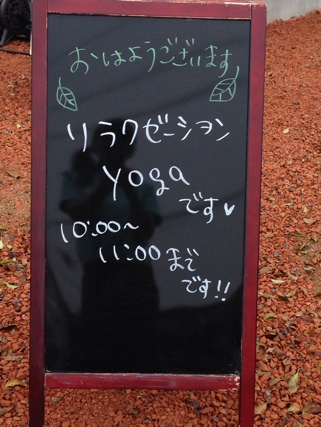 おはようございます
リラクゼーション
yoga
です♥
10:00〜
11:00まで
です!!